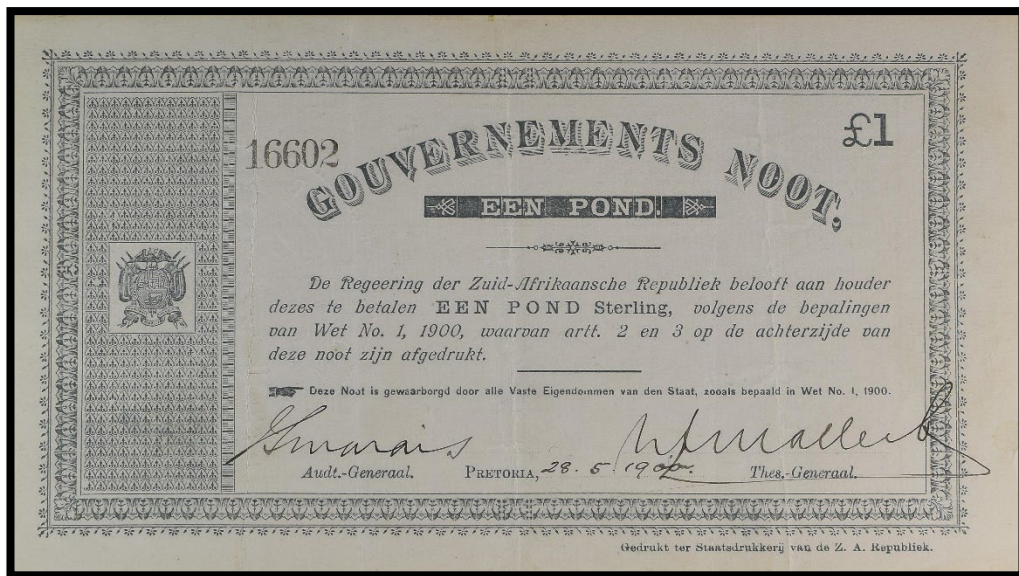 16602
£1
GOUVERNEMENTS NOOT,
EEN POND.
De Regeering der Zuid-Afrikaansche Republiek belooft aan houder
dezes te betalen EEN POND Sterling, volgens de bepalingen
van Wet No. 1, 1900, waarvan artt. 2 en 3 op de achterzijde van
deze noot zijn afgedrukt.
Deze Noot is gewaarborgd door alle Vaste Eigendommen van den Staat, zooals bepaald in Wet No. 1, 1900.
Audt.-Generaal. PRETORIA, 28.5.1900. Thes.-Generaal.
Gedrukt ter Staatsdrukkerij van de Z. A. Republiek.